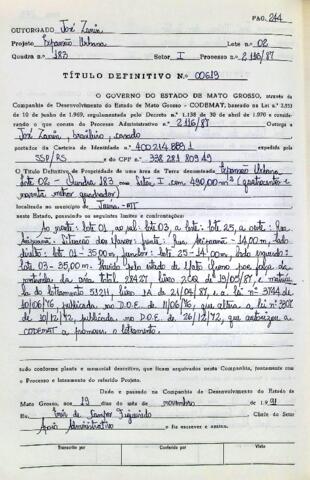 PAG. 244
OUTORGADO José Zanin
Projeto Expansão Urbana Lote n.o 02
Quadra n.o 183 Setor I Processo n.o 2116/87
TÍTULO DEFINITIVO N.o 00619
O GOVERNO DO ESTADO DE MATO GROSSO, através da
Companhia de Desenvolvimento do Estado de Mato Grosso - CODEMAT, baseado na Lei n.o
10 de junho de 1969, regulamentada pelo Decreto n.o 1.138 de 30 de abril de 1970 e consideran-
rando o que consta do Processo Administrativo n.o 2116/87 Outorga a
José Zanin, brasileiro, casado
portador da Carteira de Identidade n.o 400 214 889 1 expedida pela
SSP/RS e do CPF n.o 338 281 809 49
O Título Definitivo de Propriedade de uma área de Terra denominada Expansão Urbana
lote 02 - Quadra 183 no Setor I com 490,00 m² (quatrocentos e
noventa metros quadrados)
localizada no município de Juína - MT
neste Estado, possuindo os seguintes limites e confrontações:
Ao norte: lote 01 ao sul lote 03, a leste: lote 25, a oeste: Rua
Situação dos Marcos: frente: Rua - 14,00 m, lado
direito: lote 01 - 35,00 m, fundos: lote 25 - 14,00 m, lado esquerdo:
lote 03 - 35,00 m. Havido pelo estado de Mato Grosso por força da
matrícula da área total livro 2 de 19/05/87, e matrícu-
la do loteamento 51211, livro 1A de 21/04/87, e a lei nº 3744 de
10/06/76 publicada no D.O.E. de 11/06/76, que altera a lei nº
10/12/72 publicada no D.O.E. de 26/12/72, que autorizou a
CODEMAT a promover o loteamento.
tudo conforme planta e memorial descritivo, que ficam arquivados nesta Companhia, juntamente com
o Processo de loteamento do referido Projeto.
Dado e passado na Companhia de Desenvolvimento do Estado de
Mato Grosso, aos 19 dias do mês de novembro de 1.991
Eu, de Campos Figueiredo Chefe do Setor
Apoio Administrativo o fiz escrever e assino.
Transcrito por Conferido por Visto